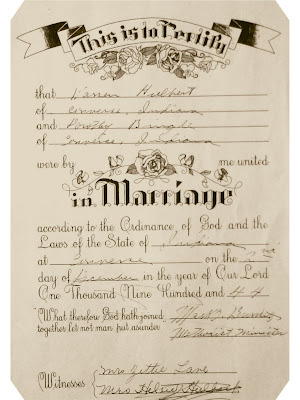 This is to Certify
that Warren Hulbert
of Converse, Indiana
and Dorothy
of Converse, Indiana
were by me united
in Marriage
according to the Ordinance of God and the
Laws of the State of Indiana
at Converse on the 2nd
day of December in the year of Our Lord
One Thousand Nine Hundred and 44
What therefore God hath joined
together let not man put asunder
Methodist Minister
Witnesses
Mrs Gettie Lane
Mrs Hulbert